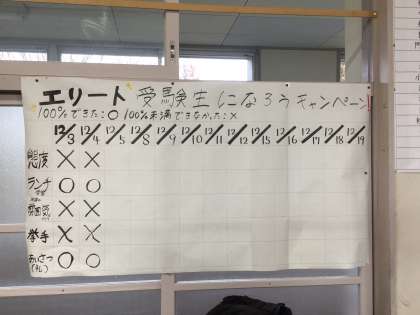 エリート 受験生 になろうキャンペーン
100%できた:○ 100%未満できなかった:×
12/3 12/4 12/5 12/8 12/9 12/10 12/11 12/12 12/15 12/16 12/17 12/18 12/19
態度 × ×
ランチ ○ ○
雰囲気 × ×
挙手 × ×
あいさつ ○ ○
(礼)